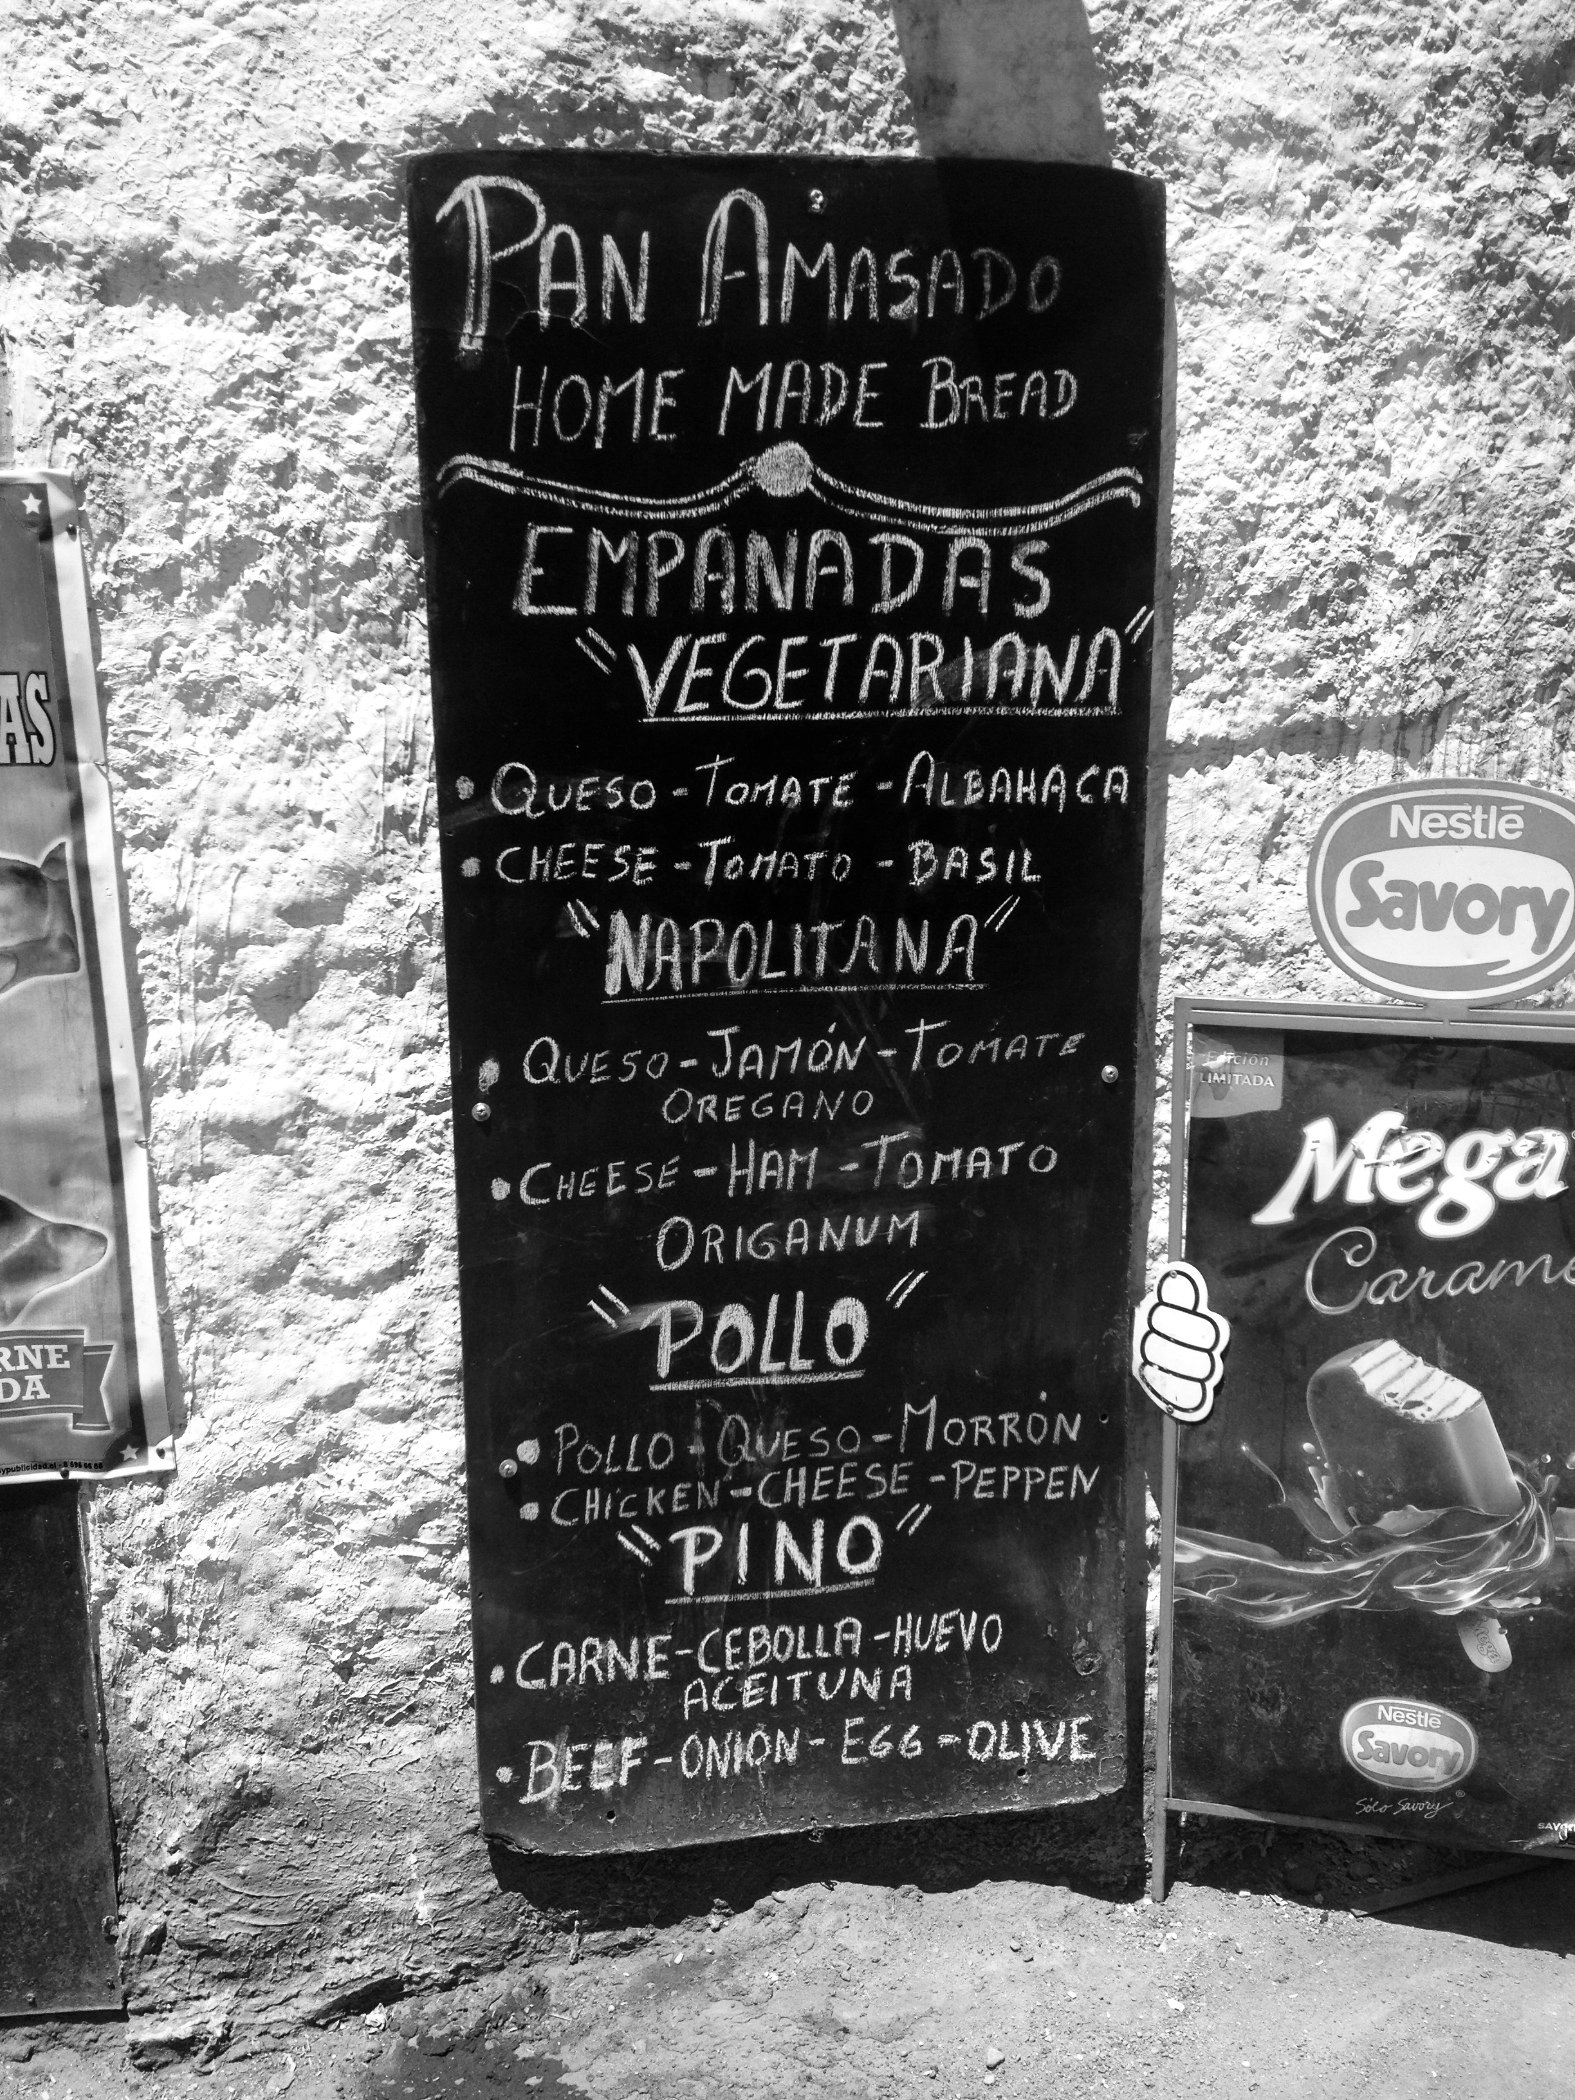 PAN AMASADO
HOME MADE BREAD
EMPANADAS
"VEGETARIANA"
• QUESO - TOMATE - ALBAHACA
• CHEESE - TOMATO - BASIL
"NAPOLITANA"
• QUESO - JAMÓN - TOMATE
OREGANO
• CHEESE - HAM - TOMATO
ORIGANUM
"POLLO"
• POLLO - QUESO - MORRÓN
• CHICKEN - CHEESE - PEPPEN
"PINO"
• CARNE - CEBOLLA - HUEVO
ACEITUNA
• BEEF - ONION - EGG - OLIVE
AS
RNE
DA
Nestlé
Savory
Edición
LIMITADA
Mega
Carame
Nestlé
Savory
Sólo Savory